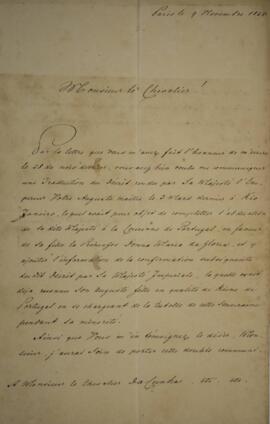 Paris le 9 Novembre 1828
Monsieur le Chevalier!
Par la lettre que vous m'avez fait l'honneur de m'écrire
le 28 du mois dernier, vous avez bien voulu me communiquer
une Traduction du Décret rendu par Sa Majesté l'Em-
pereur Votre Auguste maître le 3 Mars dernier à Rio
Janeiro, lequel avait pour objet de compléter l'abdication
de Sa dite Majesté à la Couronne de Portugal, en faveur
de Sa fille la Princesse Donna Maria da Gloria, et y
ajouter l'information de la confirmation subséquente
du dit Décret par Sa Majesté Impériale, laquelle avait
déjà reconnu Son Auguste fille en qualité de Reine de
Portugal en se chargeant de la tutelle de cette Souveraine
pendant sa minorité.
Ainsi que Vous m'en témoignez le désir, Mon-
sieur, j'aurai soin de porter cette double communi-
A Monsieur le Chevalier Da Cunha. etc. etc.